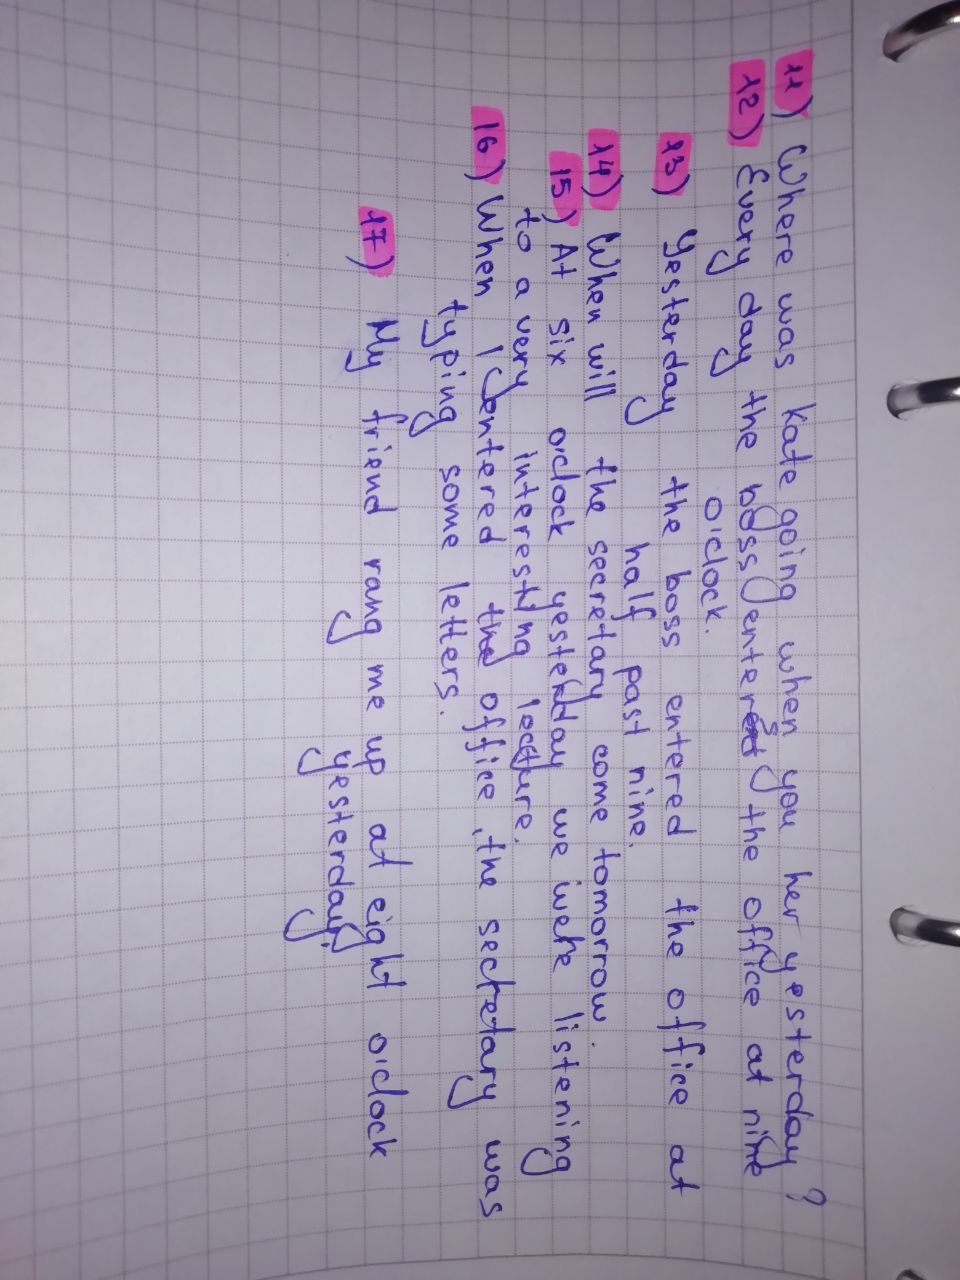 11) Where was Kate going when you her yesterday?
12) Every day the boss enters the office at nine
o'clock.
13) Yesterday the boss entered the office at
half past nine.
14) When will the secretary come tomorrow.
15) At six o'clock yesterday we were listening
to a very interesting lecture.
16) When I entered the office, the secretary was
typing some letters.
17) My friend rang me up at eight o'clock
yesterday.